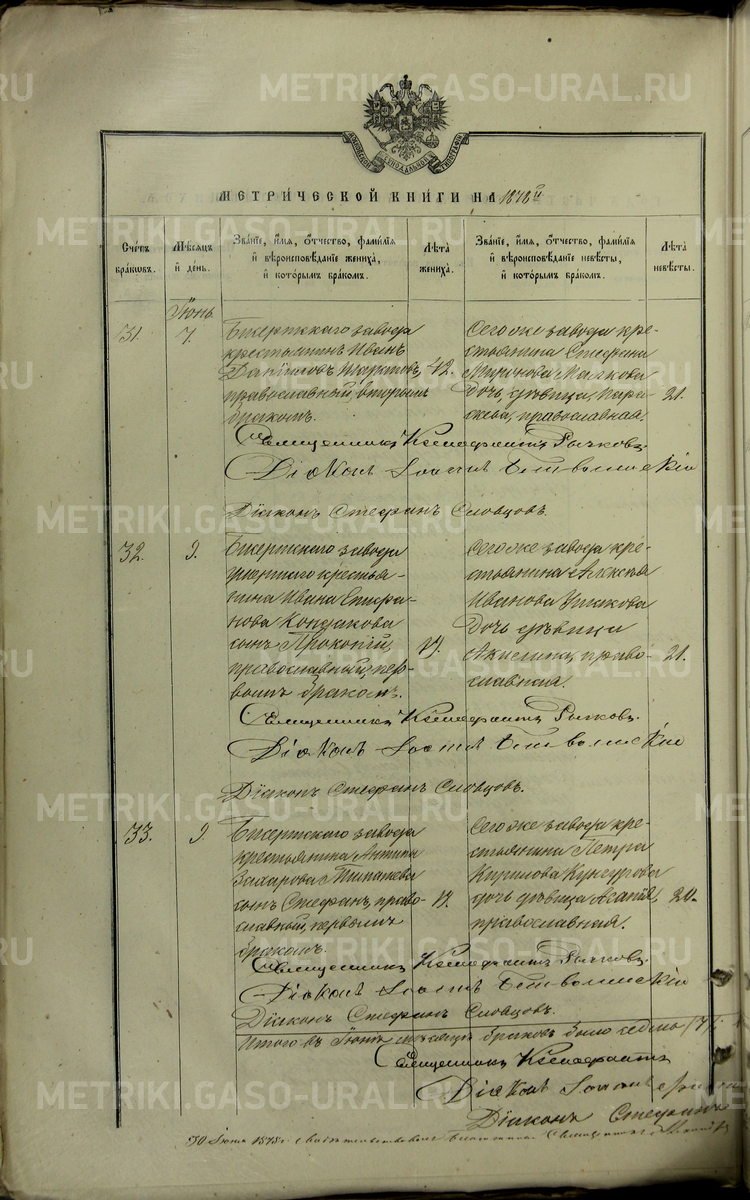 МЕТРИ́ЧЕСКОЙ КНИ́ГИ НА 1878 й
Сче́тъ бра́ковъ.
Мѣ́сяцъ и҆ де́нь.
Зва́нїе, и҆́мя, ѻ҆́тчество, фами́лїя и҆ вѣроисповѣ́данїе жениха̀, и҆ кото́рымъ бра́комъ.
Лѣ́та жениха̀.
Зва́нїе, и҆́мя, ѻ҆́тчество, фами́лїя и҆ вѣроисповѣ́данїе невѣ́сты, и҆ кото́рымъ бра́комъ.
Лѣ́та невѣ́сты.
Іюнь
31.
7.
Бисертскаго завода
крестьянинъ Иванъ
православный, вторымъ
бракомъ.
42.
Сегоже завода кре-
стьянина Стефана
дочь, дѣвица Пара-
скева, православная.
21.
Священникъ Ксенофонтъ Рычковъ.
Діаконъ Іоаннъ
Діаконъ Стефанъ Словцовъ.
32.
9.
Бисертскаго завода
крестья-
нина Ивана
нова Кондакова
сынъ Прокопій,
православный, пер-
вымъ бракомъ.
19.
Сегоже завода кре-
стьянина Алексѣя
Иванова Ушакова
дочь дѣвица
Акилина, право-
славная.
21.
Священникъ Ксенофонтъ Рычковъ.
Діаконъ Іоаннъ
Діаконъ Стефанъ Словцовъ.
33.
9.
Бисертскаго завода
крестьянина Антипа
Захарова
сынъ Стефанъ, право-
славный, первымъ
бракомъ.
19.
Сегоже завода кре-
стьянина Петра
Кирилова Кунгурова
дочь дѣвица Агапія,
православная.
20.
Священникъ Ксенофонтъ Рычковъ.
Діаконъ Іоаннъ
Діаконъ Стефанъ Словцовъ.
Итого въ Іюнѣ мѣсяцѣ браковъ было седмь (7);
Священникъ Ксенофонтъ
Діаконъ Іоаннъ
Діаконъ Стефанъ
30 Іюня 1878 г.
METRIKI.GASO-URAL.RU